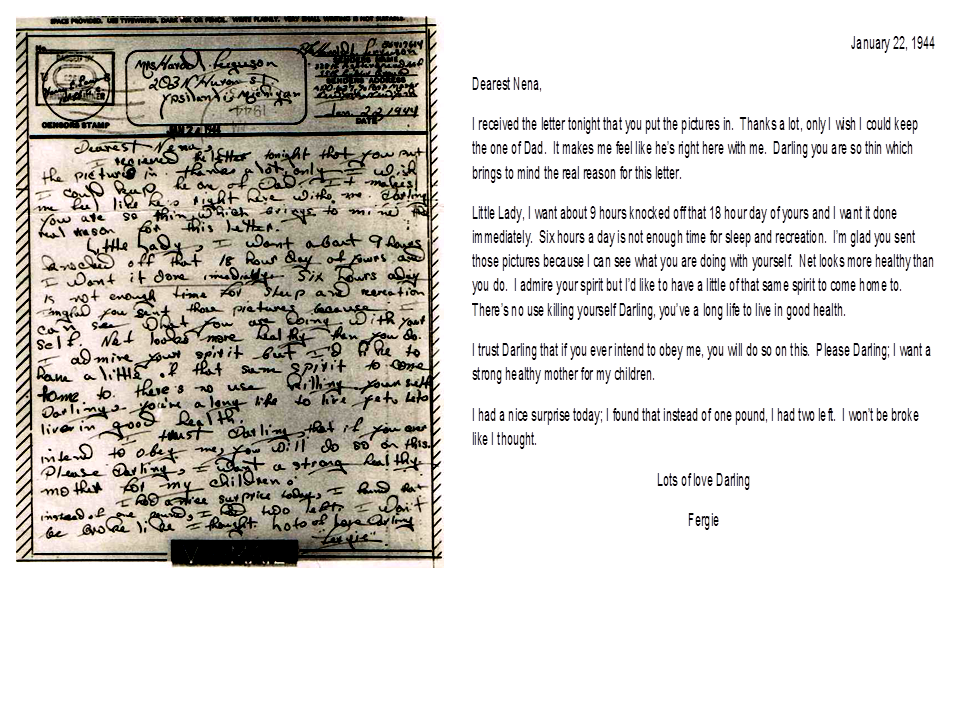 SPACE PROVIDED. USE TYPEWRITER, DARK INK OR PENCIL. WRITE PLAINLY. VERY SMALL WRITING IS NOT SUITABLE.
No.
CENSORS STAMP
Mrs Harold Ferguson
203 N Huron St
Ypsilanti, Michigan
SENDERS NAME
SENDERS ADDRESS
Jan 22 1944
DATE
JAN 24 1944
1944
Dearest Nena,
I recieved the letter tonight that you put
the pictures in. thanks a lot, only I wish
I could keep the one of Dad. It makes
me feel like he's right here with me. Darling
you are so thin, which brings to mind the
real reason for this letter.
Little Lady, I want about 9 hours
knocked off that 18 hour day of yours and
I want it done immediately. Six hours a day
is not enough time for sleep and recreation
I'm glad you sent those pictures because I
can see what you are doing with your
self. Net looks more healthy then you do.
I admire your spirit but I'd like to
have a little of that same spirit to come
home to. there's no use killing yourself
Darling, you've a long life to live
in good health.
I trust Darling, that if you ever
intend to obey me, you will do so on this.
Please Darling, I want a strong healthy
mother for my children.
I had a nice surprise today, I found that
instead of one pound, I had two left. I won't
be broke like I thought. Lots of love Darling
Fergie
January 22, 1944
Dearest Nena,
I received the letter tonight that you put the pictures in. Thanks a lot, only I wish I could keep
the one of Dad. It makes me feel like he's right here with me. Darling you are so thin which
brings to mind the real reason for this letter.
Little Lady, I want about 9 hours knocked off that 18 hour day of yours and I want it done
immediately. Six hours a day is not enough time for sleep and recreation. I'm glad you sent
those pictures because I can see what you are doing with yourself. Net looks more healthy than
you do. I admire your spirit but I'd like to have a little of that same spirit to come home to.
There's no use killing yourself Darling, you've a long life to live in good health.
I trust Darling that if you ever intend to obey me, you will do so on this. Please Darling; I want a
strong healthy mother for my children.
I had a nice surprise today; I found that instead of one pound, I had two left. I won't be broke
like I thought.
Lots of love Darling
Fergie